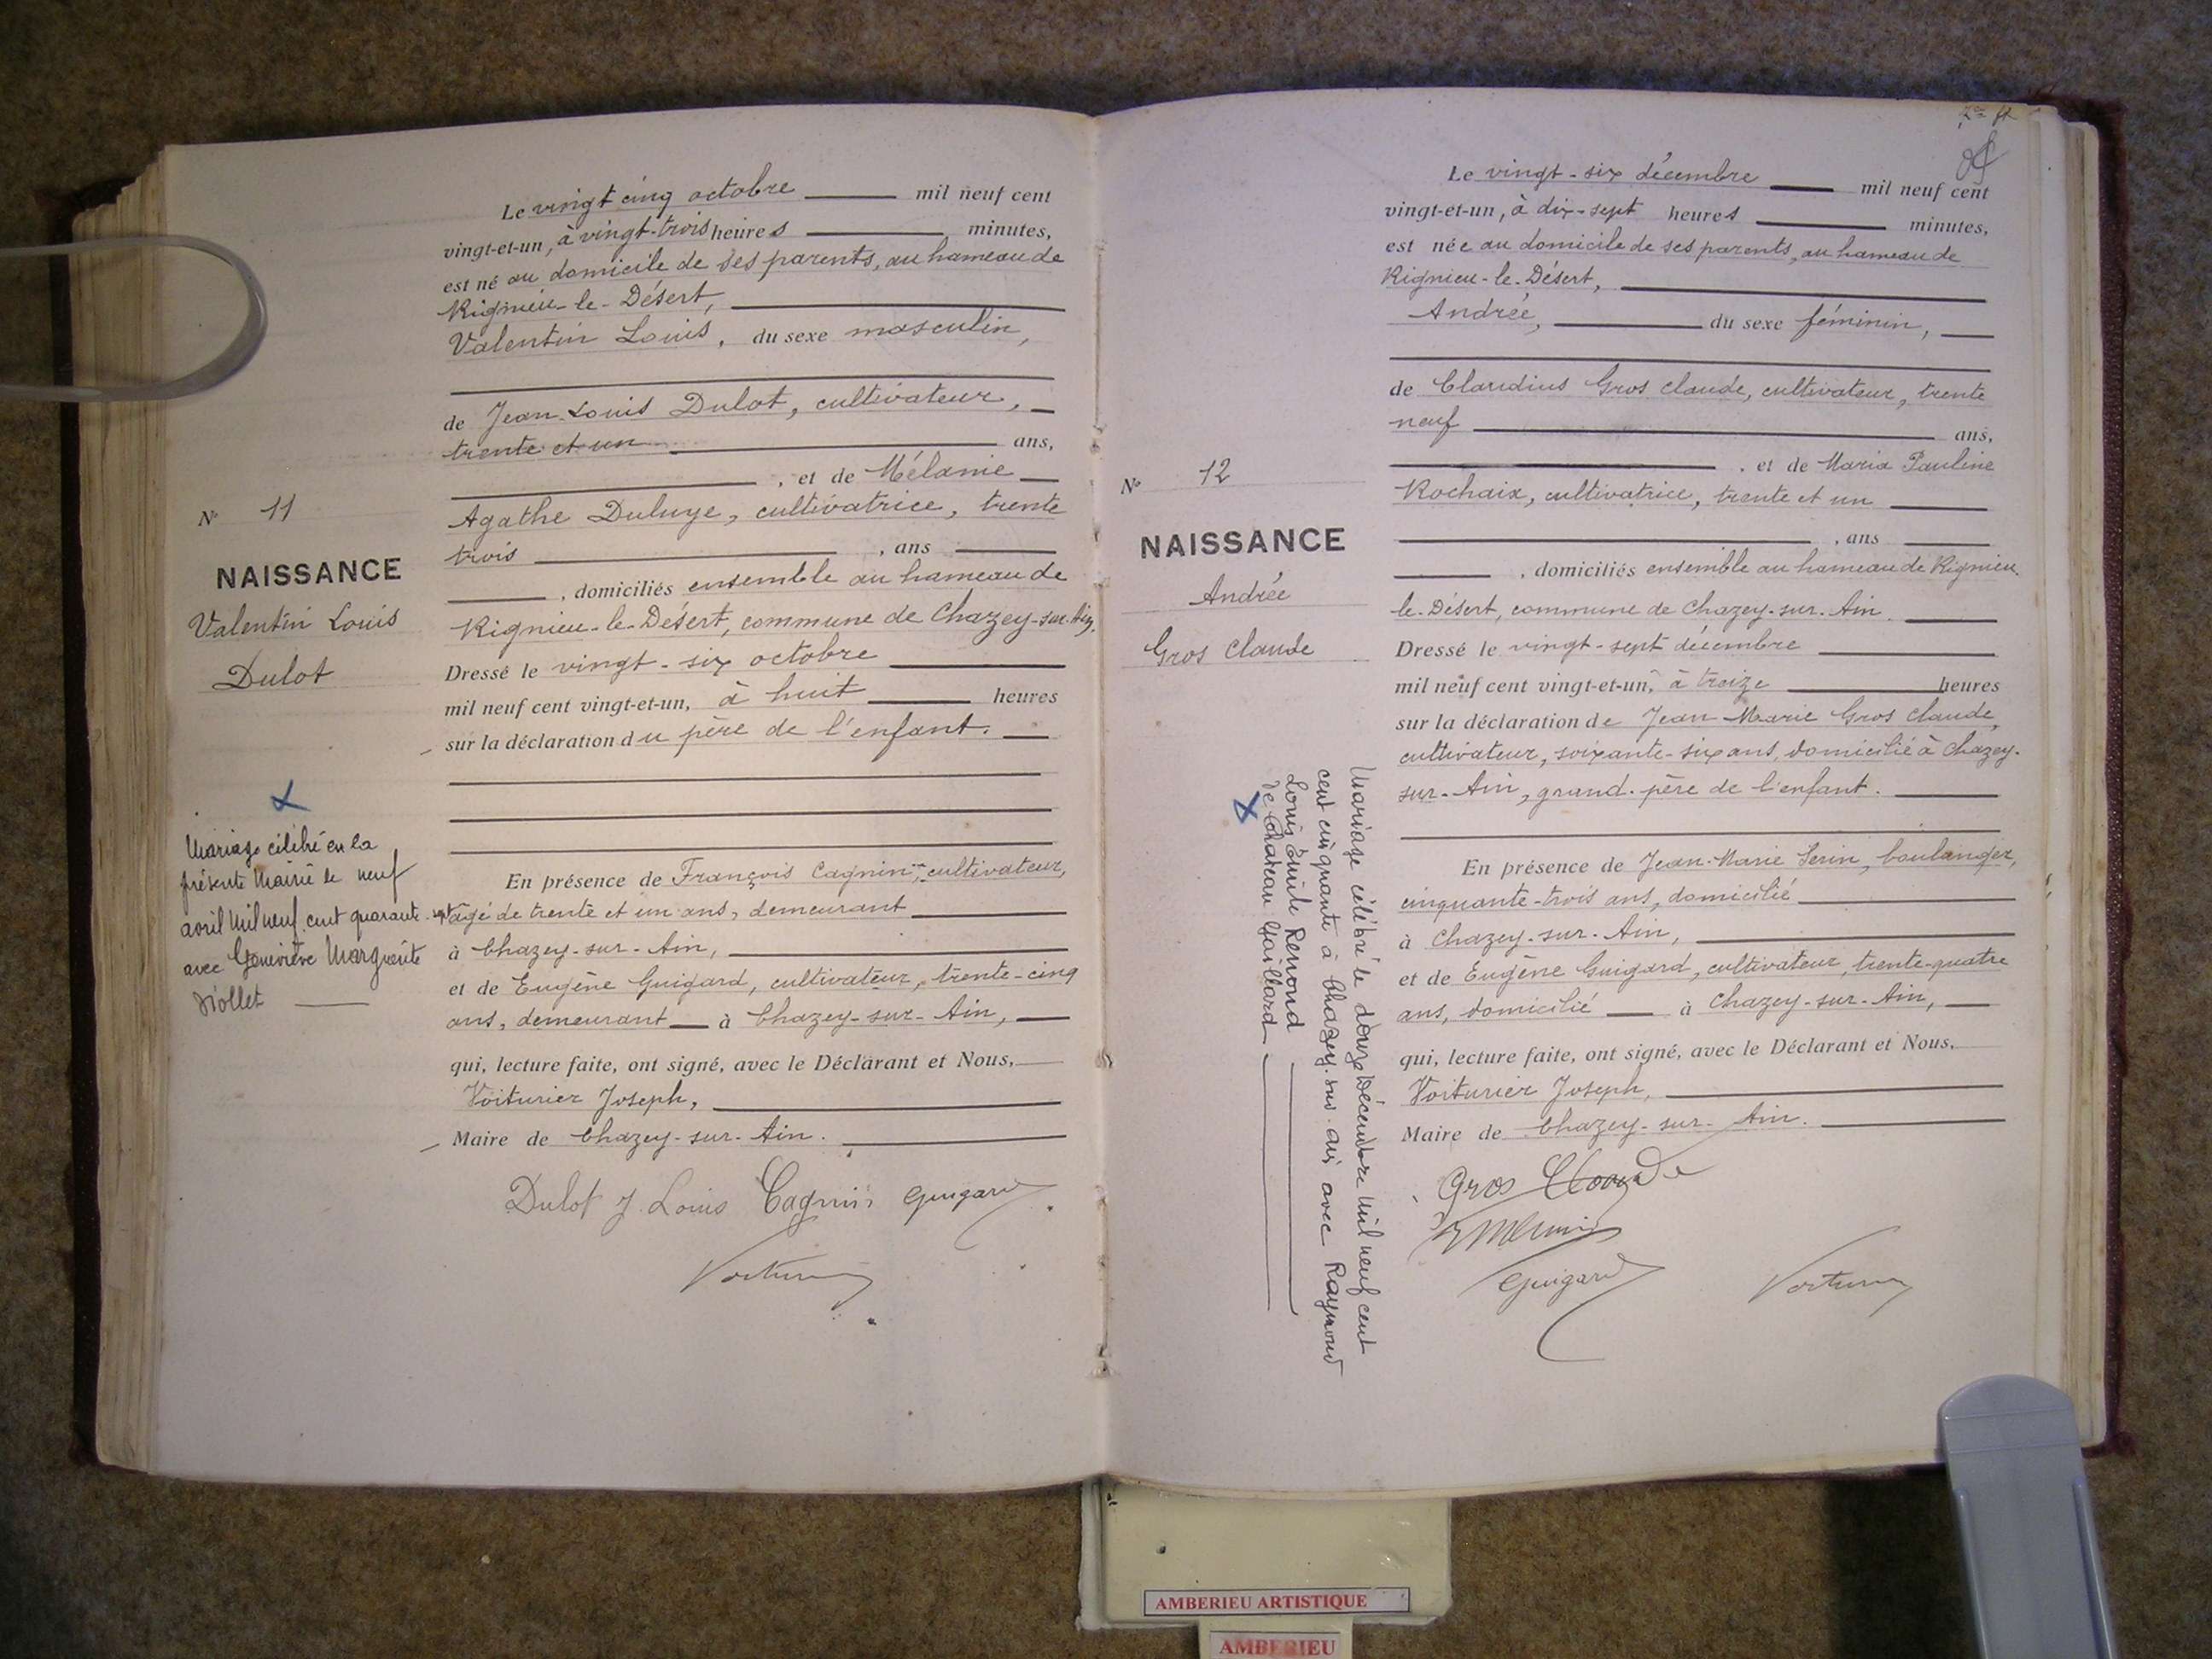 N° 11
NAISSANCE
Valentin Louis
Dulot
Mariage célébré en la
présente Mairie le neuf
avril mil neuf cent quarante-sept
avec Geneviève Marguerite
Le vingt cinq octobre mil neuf cent
vingt-et-un, à vingt-trois heures minutes,
est né au domicile de ses parents, au hameau de
Rignieu-le-Désert,
Valentin Louis, du sexe masculin,
de Jean-Louis Dulot, cultivateur,
trente et un ans,
, et de Mélanie
Agathe Duluye, cultivatrice, trente
trois , ans
, domiciliés ensemble au hameau de
Rignieu-le-Désert, commune de Chazey-sur-Ain.
Dressé le vingt-six octobre
mil neuf cent vingt-et-un, à huit heures
sur la déclaration du père de l'enfant.
En présence de François Cagnin, cultivateur,
âgé de trente et un ans, demeurant
à Chazey-sur-Ain,
et de Eugène Guigard, cultivateur, trente-cinq
ans, demeurant à Chazey-sur-Ain,
qui, lecture faite, ont signé, avec le Déclarant et Nous,
Voiturier Joseph,
Maire de Chazey-sur-Ain.
Dulot J. Louis Cagnin Guigard
Voiturier
N° 12
NAISSANCE
Andrée
Gros Claude
Mariage célébré le douze Décembre mil neuf cent
cent cinquante à Chazey-sur-Ain avec Raymond
Louis Emile Renond
de Chateau Gaillard
Le vingt-six décembre mil neuf cent
vingt-et-un, à dix-sept heures minutes,
est née au domicile de ses parents, au hameau de
Rignieu-le-Désert,
Andrée, du sexe féminin,
de Claudius Gros Claude, cultivateur, trente
neuf ans,
, et de Maria Pauline
Rochaix, cultivatrice, trente et un
, ans
, domiciliés ensemble au hameau de Rignieu-
le-Désert, commune de Chazey-sur-Ain.
Dressé le vingt-sept décembre
mil neuf cent vingt-et-un, à treize heures
sur la déclaration de Jean-Marie Gros Claude,
cultivateur, soixante-six ans, domicilié à Chazey-
sur-Ain, grand-père de l'enfant.
En présence de Jean-Marie Serin, boulanger,
cinquante-trois ans, domicilié
à Chazey-sur-Ain,
et de Eugène Guigard, cultivateur, trente-quatre
ans, domicilié à Chazey-sur-Ain,
qui, lecture faite, ont signé, avec le Déclarant et Nous,
Voiturier Joseph,
Maire de Chazey-sur-Ain.
Gros Claude
Guigard Voiturier
AMBERIEU ARTISTIQUE
AMBERIEU